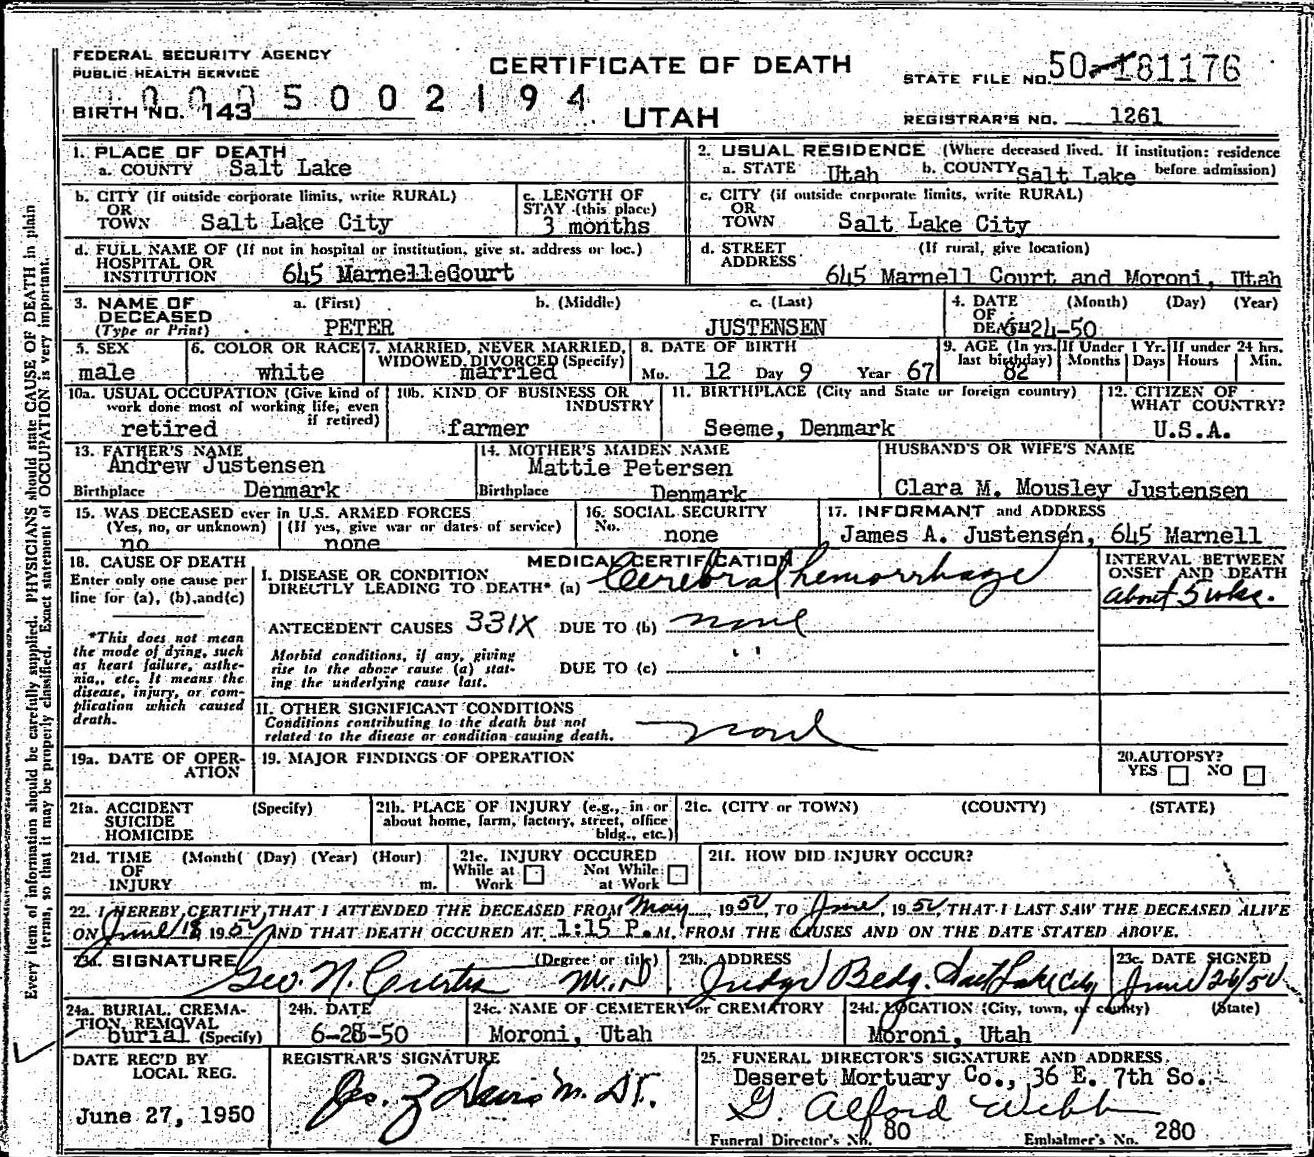 FEDERAL SECURITY AGENCY
PUBLIC HEALTH SERVICE
CERTIFICATE OF DEATH
STATE FILE NO. 50-181176
0005002194
BIRTH NO. 143
UTAH
REGISTRAR'S NO. 1261
1. PLACE OF DEATH
a. COUNTY Salt Lake
2. USUAL RESIDENCE (Where deceased lived. If institution: residence before admission)
a. STATE Utah b. COUNTY Salt Lake
b. CITY (If outside corporate limits, write RURAL)
OR
TOWN Salt Lake City
c. LENGTH OF STAY (this place)
3 months
c. CITY (if outside corporate limits, write RURAL)
OR
TOWN Salt Lake City
d. FULL NAME OF (If not in hospital or institution, give st. address or loc.)
HOSPITAL OR
INSTITUTION 645 MarnelleCourt
d. STREET (If rural, give location)
ADDRESS 645 Marnell Court and Moroni, Utah
3. NAME OF DECEASED (Type or Print)
a. (First) b. (Middle) c. (Last)
PETER JUSTENSEN
4. DATE OF DEATH (Month) (Day) (Year)
6-24-50
5. SEX
male
6. COLOR OR RACE
white
7. MARRIED, NEVER MARRIED, WIDOWED, DIVORCED (Specify)
married
8. DATE OF BIRTH
Mo. 12 Day 9 Year 67
9. AGE (In yrs. last birthday)
82
If Under 1 Yr. Months Days
If under 24 hrs. Hours Min.
10a. USUAL OCCUPATION (Give kind of work done most of working life, even if retired)
retired
10b. KIND OF BUSINESS OR INDUSTRY
farmer
11. BIRTHPLACE (City and State or foreign country)
Seeme, Denmark
12. CITIZEN OF WHAT COUNTRY?
U.S.A.
13. FATHER'S NAME
Andrew Justensen
Birthplace Denmark
14. MOTHER'S MAIDEN NAME
Mattie Petersen
Birthplace Denmark
HUSBAND'S OR WIFE'S NAME
Clara M. Mousley Justensen
15. WAS DECEASED ever in U.S. ARMED FORCES
(Yes, no, or unknown) (If yes, give war or dates of service)
no none
16. SOCIAL SECURITY No.
none
17. INFORMANT and ADDRESS
James A. Justensen, 645 Marnell
18. CAUSE OF DEATH
Enter only one cause per line for (a), (b), and (c)
*This does not mean the mode of dying, such as heart failure, asthenia, etc. It means the disease, injury, or complication which caused death.
MEDICAL CERTIFICATION
I. DISEASE OR CONDITION
DIRECTLY LEADING TO DEATH* (a) Cerebral hemorrhage
INTERVAL BETWEEN ONSET AND DEATH
about 5 wks.
ANTECEDENT CAUSES 331X DUE TO (b) none
Morbid conditions, if any, giving rise to the above cause (a) stating the underlying cause last.
DUE TO (c) "
II. OTHER SIGNIFICANT CONDITIONS
Conditions contributing to the death but not related to the disease or condition causing death. none
19a. DATE OF OPERATION
19. MAJOR FINDINGS OF OPERATION
20. AUTOPSY?
YES NO
21a. ACCIDENT SUICIDE HOMICIDE (Specify)
21b. PLACE OF INJURY (e.g., in or about home, farm, factory, street, office bldg., etc.)
21c. (CITY or TOWN) (COUNTY) (STATE)
21d. TIME OF INJURY (Month( (Day) (Year) (Hour) m.
21e. INJURY OCCURED
While at Work Not While at Work
21f. HOW DID INJURY OCCUR?
22. I HEREBY CERTIFY THAT I ATTENDED THE DECEASED FROM May, 1950, TO June, 1950, THAT I LAST SAW THE DECEASED ALIVE
ON June 18, 1950, AND THAT DEATH OCCURED AT 1:15 P.M. FROM THE CAUSES AND ON THE DATE STATED ABOVE.
23a. SIGNATURE (Degree or title)
Geo. N. Curtis M.D
23b. ADDRESS
Judge Bldg. Salt Lake City
23c. DATE SIGNED
June 26/50
24a. BURIAL, CREMATION, REMOVAL (Specify)
burial
24b. DATE
6-28-50
24c. NAME OF CEMETERY or CREMATORY
Moroni, Utah
24d. LOCATION (City, town, or county) (State)
Moroni, Utah
DATE REC'D BY LOCAL REG.
June 27, 1950
REGISTRAR'S SIGNATURE
25. FUNERAL DIRECTOR'S SIGNATURE AND ADDRESS.
Deseret Mortuary Co., 36 E. 7th So.
G. Alford Webb
Funeral Director's No. 80 Embalmer's No. 280
Every item of information should be carefully supplied. PHYSICIANS should state CAUSE OF DEATH in plain
terms, so that it may be properly classified. Exact statement of OCCUPATION is very important.